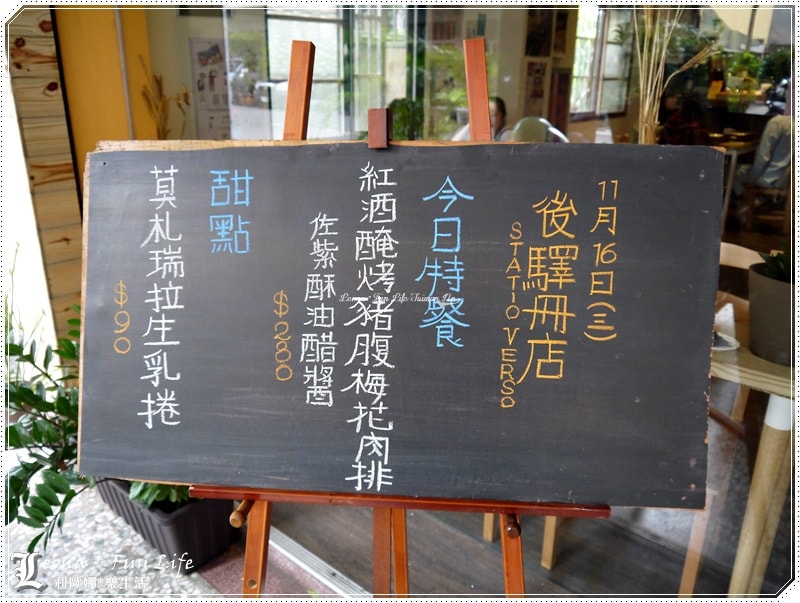 11月16日(三)
後驛冊店
STATIO VERSO
今日特餐
紅酒醃烤豬腹梅花肉排
佐紫酥油醋醬
$280
甜點
莫札瑞拉生乳捲
$90
Leona Fun Life